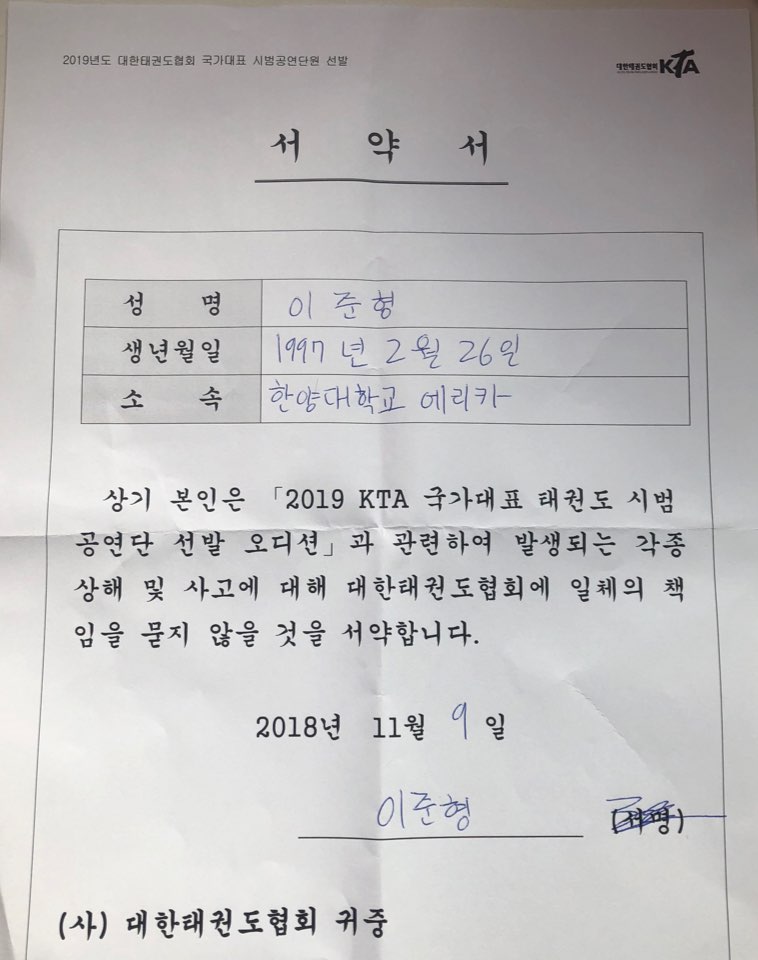 2019년도 대한태권도협회 국가대표 시범공연단원 선발
대한태권도협회 KTA
서 약 서
성 명 이준형
생년월일 1997년 2월 26일
소 속 한양대학교 에리카
상기 본인은 「2019 KTA 국가대표 태권도 시범
공연단 선발 오디션」과 관련하여 발생되는 각종
상해 및 사고에 대해 대한태권도협회에 일체의 책
임을 묻지 않을 것을 서약합니다.
2018년 11월 9일
이준형 (서명)
(사) 대한태권도협회 귀중